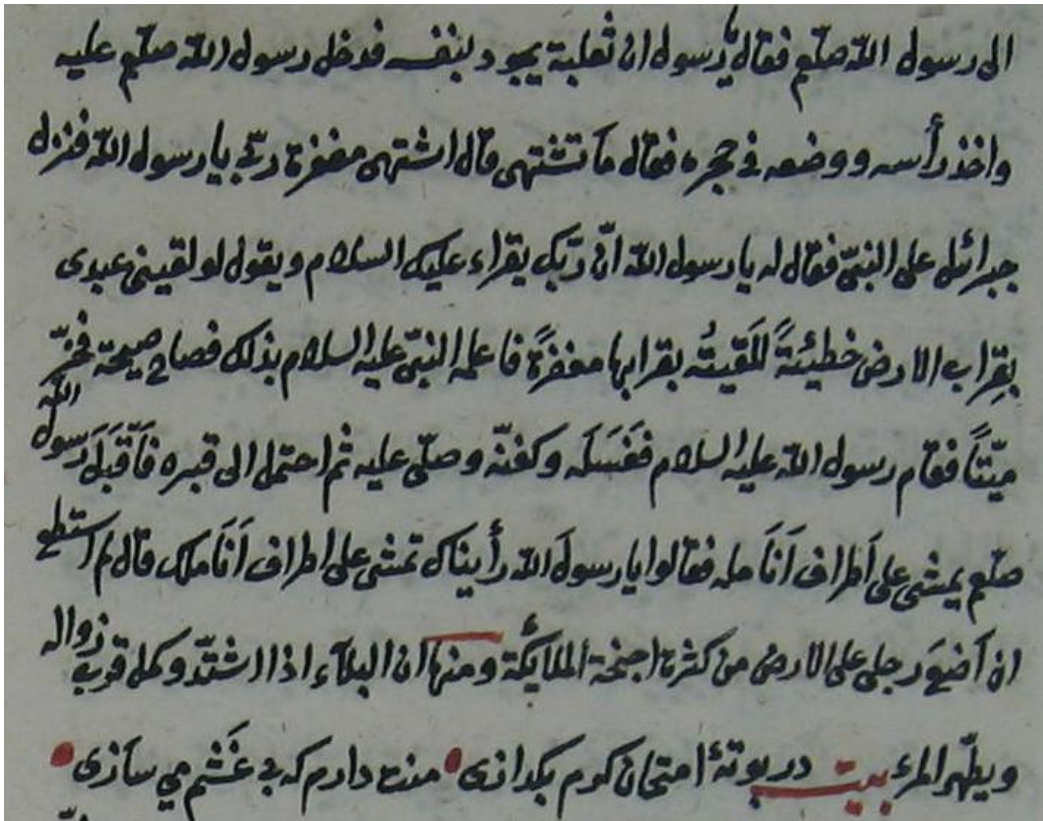 الى رسول الله صلعم فقال يا رسول ان ثعلبة يجود بنفسه فدخل رسول الله صلعم عليه
واخذ رأسه ووضعه في حجره فقال ما تشتهى قال اشتهى مغفرة ربّي يا رسول الله فنزل
جبرائل على النبيّ فقال له يا رسول الله انّ ربّك يقراء عليك السلام ويقول لو لقينى عبدى
بقِراب الارض خطيئةً للَقيتُه بقرابها مغفرةً فاعلمه النبيّ عليه السلام بذلك فصاح صيحة فخرّ
ميّتاً فقام رسول الله عليه السلام فغَسَلَه وكفنّه وصلّى عليه ثم احتمل الى قبره فاَقبَلَ رسول الله
صلعم يمشى على اَطراف اَنَامله فقالوا يا رسولَ الله رأيناك تمشى على اطراف اَنَاملك قال لم استطع
ان اَضعَ رجلى على الارض من كثرة اجنحة الملائِكة ومنها ان البلآء اذا اشتدّ وكمل قرب زواله
ويطهّر المرء بيت در بوتهٔ امتحان كرم بكدازى منت دارم كه بى غَشم مي سازى